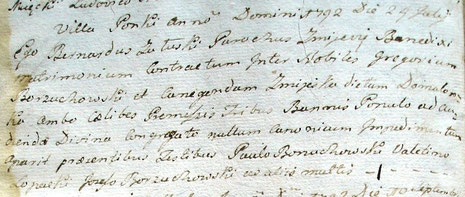 Ludovico
Villa Ponki Anno Domini 1792 Die 24 Julij
Ego Bernardus Parochus Benedixi
matrimonium Contractum Inter Nobiles Gregorium
Borzuchowski et Cunegundam dictam
ambo Cælibes Premissis tribus Bannis Populo ad Au
diendo Divina Congregato nullum Canonicum Impedimentum
præsentibus Testibus Paulo Borzuchowski Valetino
Josefo Borzuchowski ac aliis multis
1792 Die